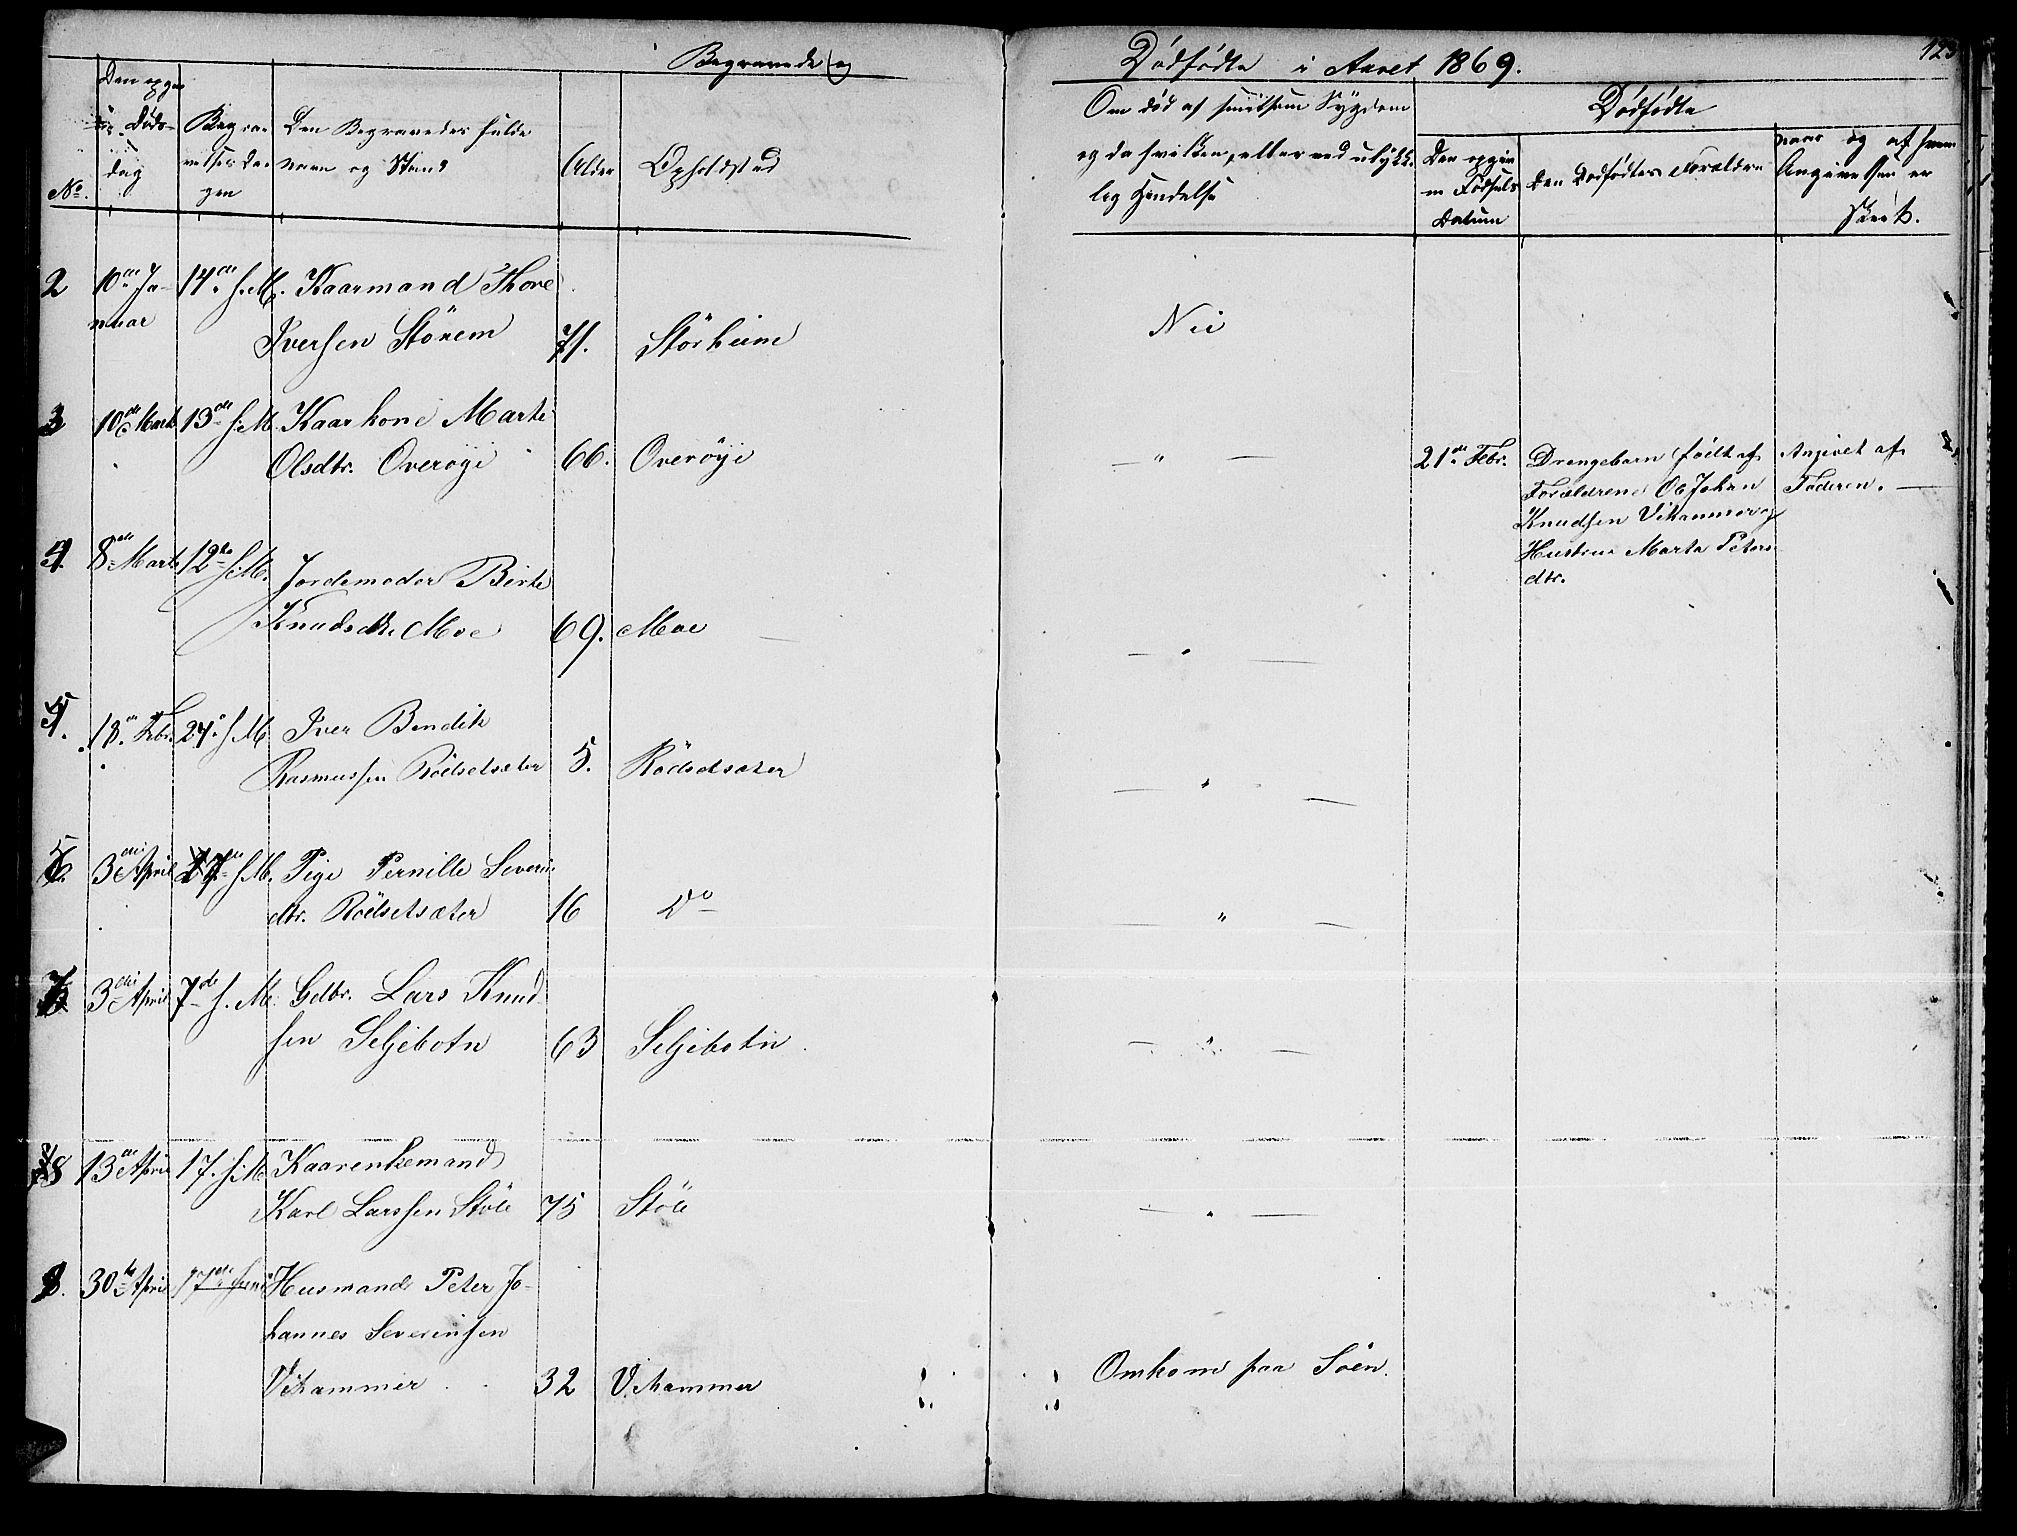 Begravede og Dødfødte i Aaret 1869.
123
No.
Den opgivne Døds-dag
Begravelses Dagen
Den Begravedes fulde
navn og Stand
Alder
Opholdsted
Om død af smitsom Sygdom
og da hvilken, eller ved ulykke-
lig Hændelse
Dødfødte
Den opgivne Fødsels Datum
Den Dødfødtes Forældre
naar og af hvem
Angivelsen er
skeet.
2 10de Ja- 14de s.M. Kaarmand Thore
nuar Iversen Störem 71. Störheim Nei
3 10de Marts 13de s.M. Kaarkone Marte
Olsdtr. Overöyi 66. Overöyi — " — 21de Febr. Drengebarn født af Angivet af
Forældrene Ole Johan Faderen. —
Knudsen Vikhammer og
Hustrue Marta Peters-
dtr.
4. 8de Marts 12te s.M. Jordemoder Birte
Knudsdtr. Moe 69. Moe — " —
5. 18de Febr. 24de s.M. Iver Bendik
Rasmussen Rödsetsæter 5. Rödsetsæter — " —
6. 3die April 7de s.M. Pige Pernille Severi-
dtr. Rödsetsæter 16 Do — " —
7 3die April 7de s.M. Gdbr. Lars Knud-
sen Seljebotn 63 Seljebotn — " —
8 13de April 17. s.M. Kaarenkemand
Karl Larssen Stöle 75 Stöle — " —
9. 30te April 17de Juni Husmand Peter Jo-
hannes Severinsen
Vikhammer 32 Vikhammer Omkom paa Söen.